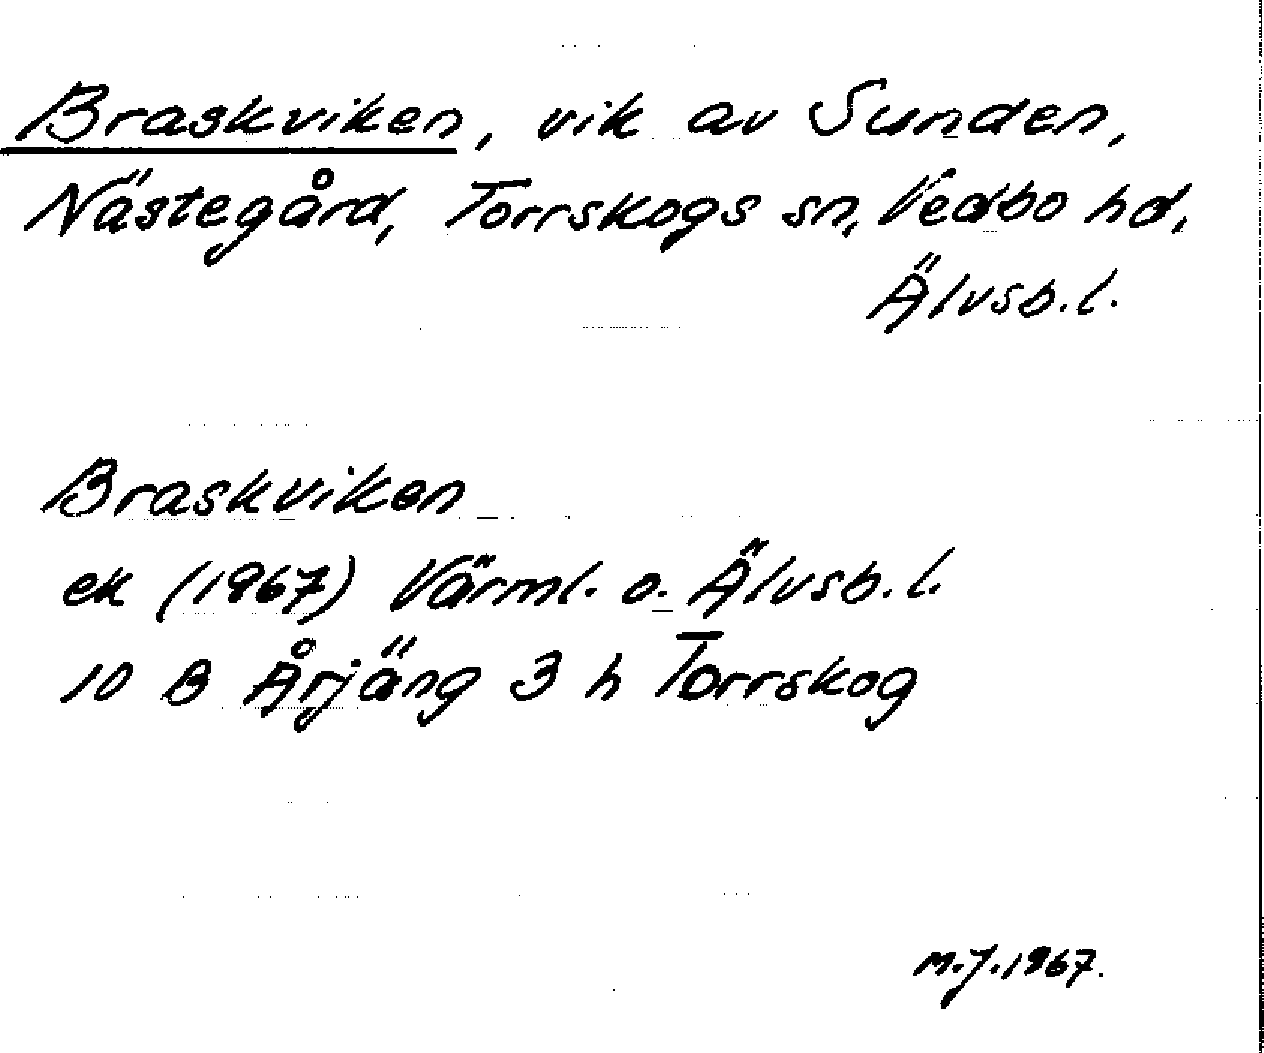 Braskviken, vik av Sunden,
Nästegård, Torrskogs sn, Vedbo hd,
Älvsb. l.
Braskviken
ek (1967) Värml. o. Älvsb. l.
10 B Årjäng 3 h Torrskog
M.J. 1967.